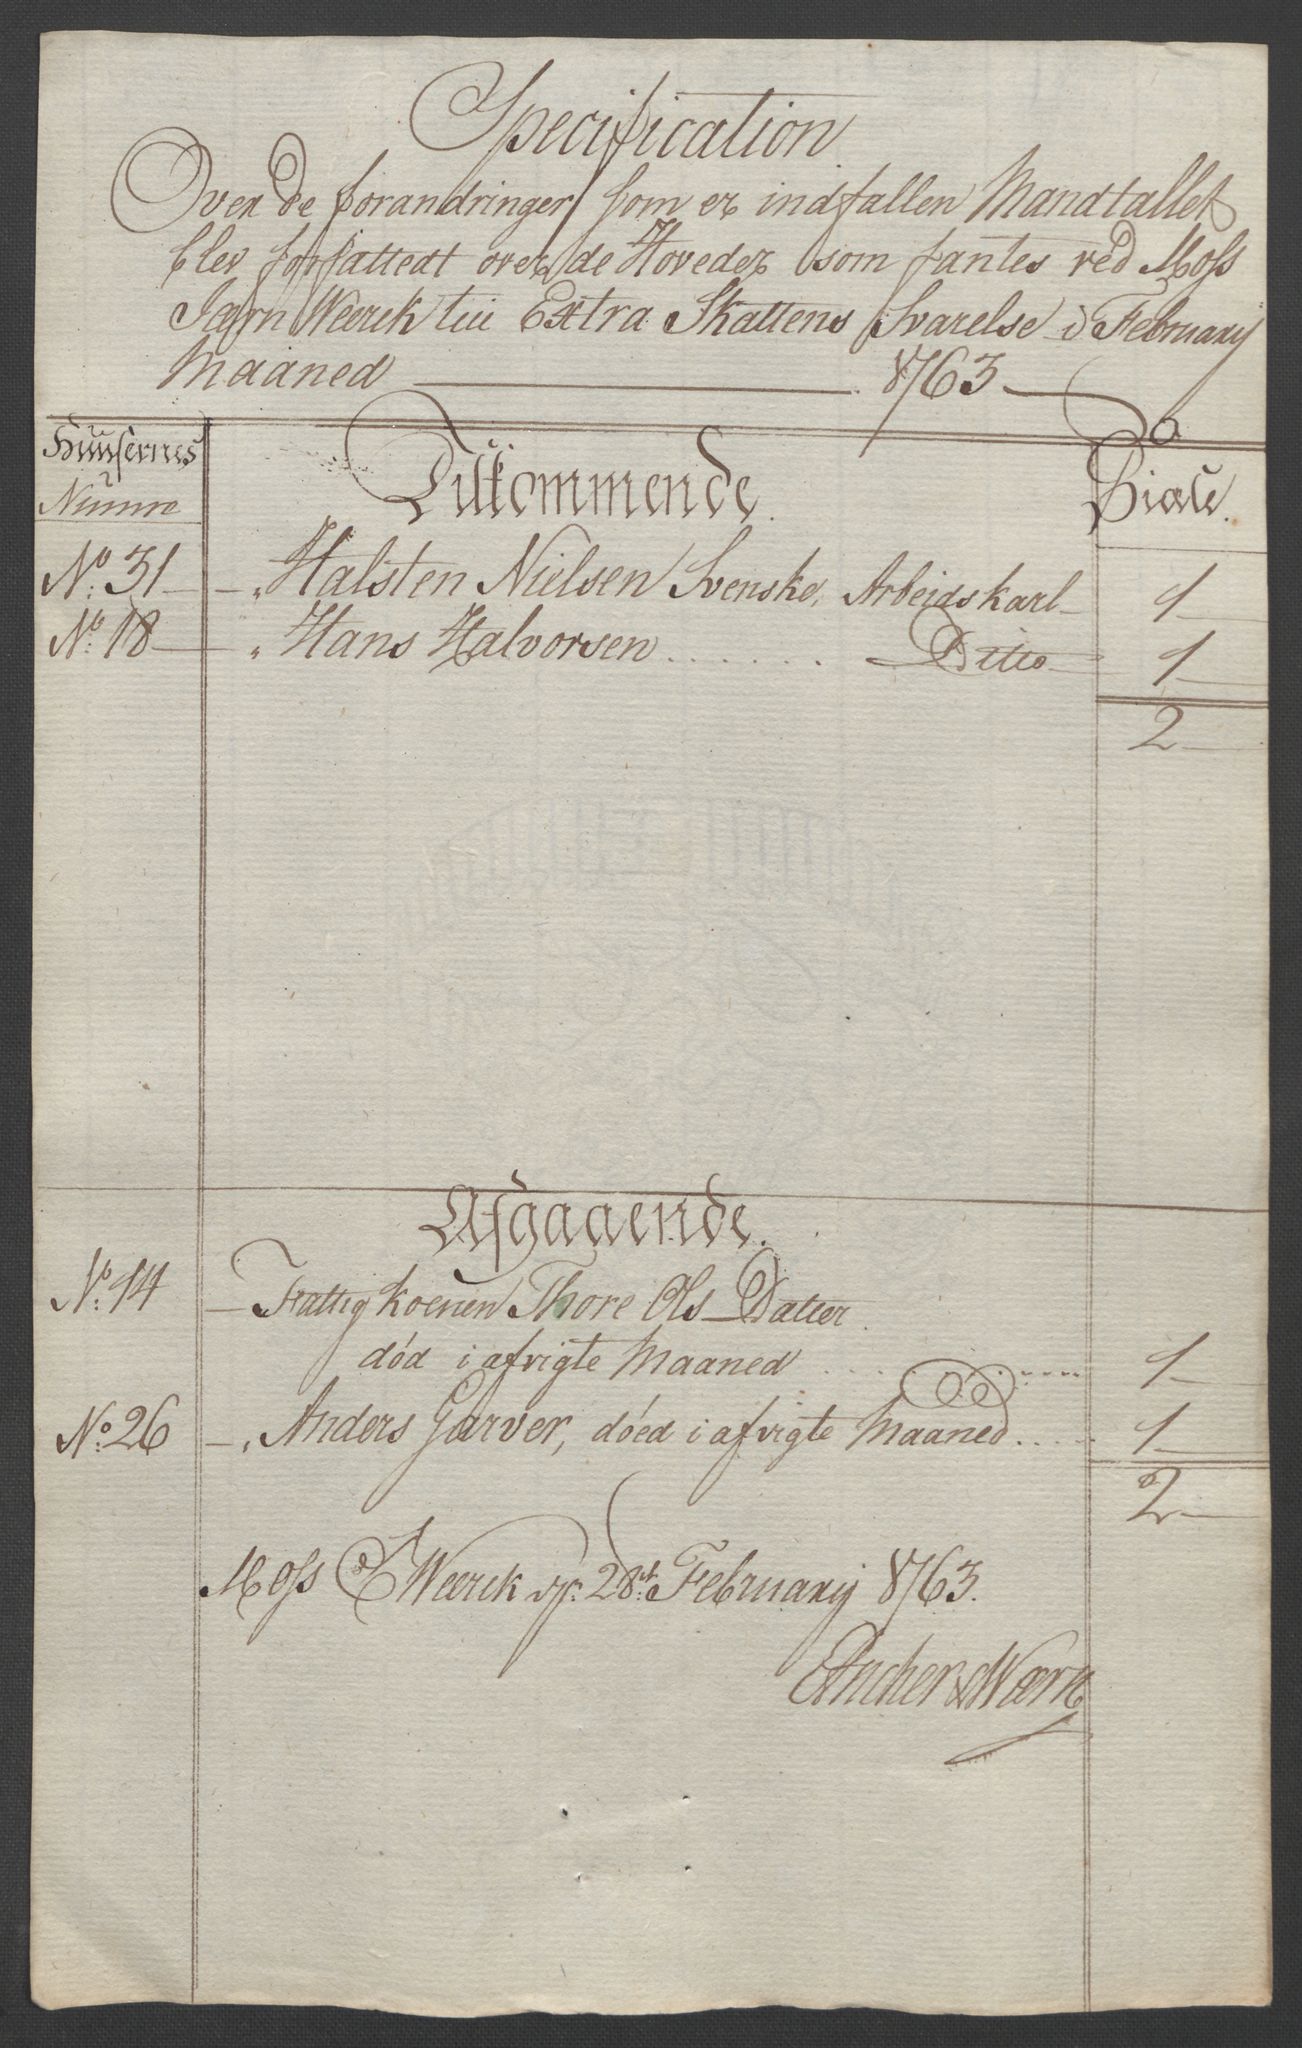 Specification
Over de forandringer som er indfallen Mandtallet
blev forfattedt over de Hoveder som fantes ved Moss
Jærn Weerck till Extra Skattens Svarelse i February
Maaned 1763
Huusernes
Numre
Tilkommende.
Siæle.
No. 31 Halsten Nielsen Svenske, Arbeidskarl 1
No. 18 Hans Halvorsen Ditto 1
2
Afgaaende.
No. 14 Fattig Koenen Thore Ols Datter
död i afvigte Maaned 1
No. 26 Anders Garver, döed i afvigte Maaned 1
2
Moss J Weerck 28de February 1763.
Ancher & Wærn